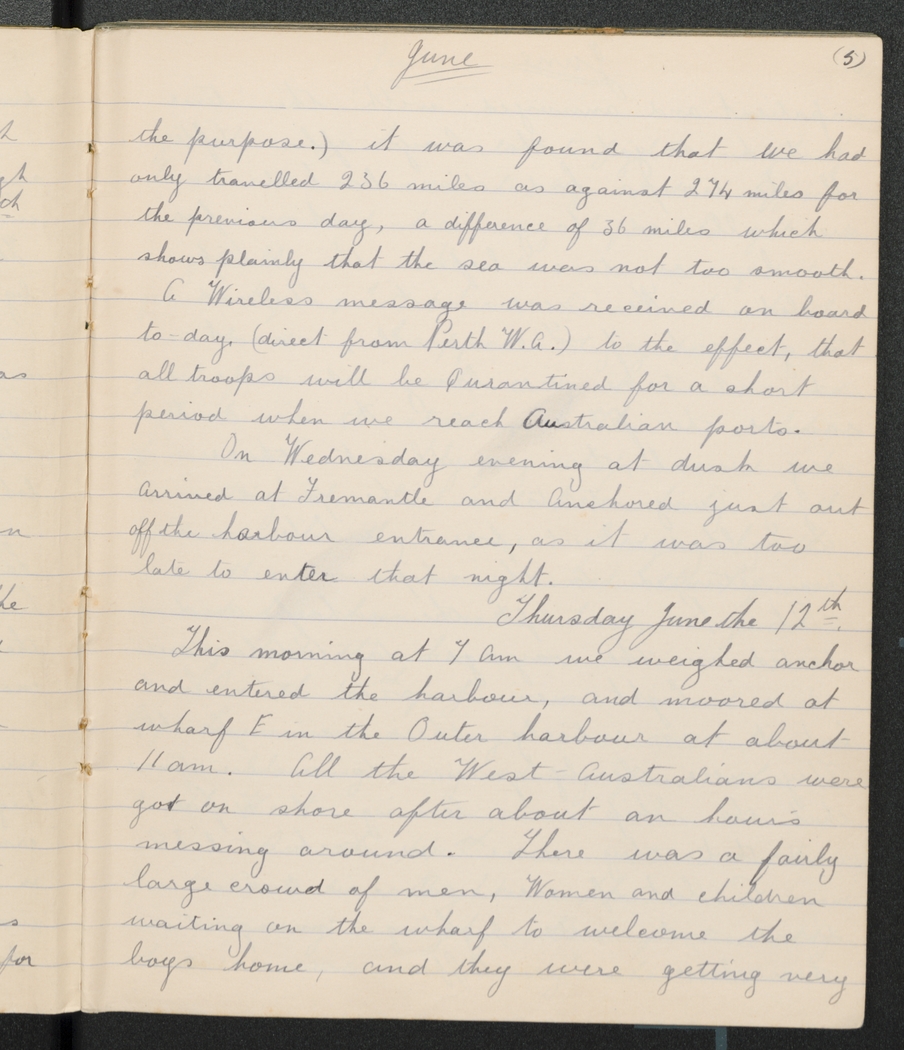 h
gh
ch
as
n
he
s
for
June
(5)
the purpose.) it was found that we had
only travelled 236 miles as against 274 miles for
the previous day, a difference of 36 miles which
shows plainly that the sea was not too smooth.
A Wireless message was received on board
to-day. (direct from Perth W.A.) to the effect, that
all troops will be Qurantined for a short
period when we reach Australian ports.
On Wednesday evening at dusk we
arrived at Fremantle and Anchored just out
off the harbour entrance, as it was too
late to enter that night.
Thursday June the 12th.
This morning at 7 am we weighed anchor
and entered the harbour, and moored at
wharf E in the Outer harbour at about
11 am. All the West-Australians were
got on shore after about an hours
messing around. There was a fairly
large crowd of men, Women and children
waiting on the wharf to welcome the
boys home, and they were getting very